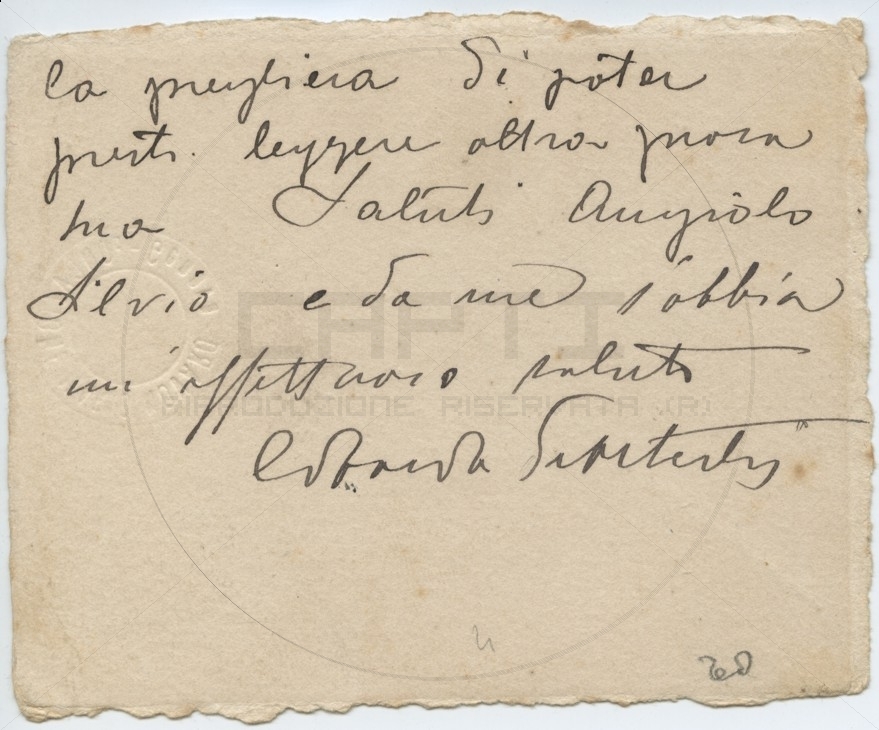 la preghiera di poter
presto leggere altra prosa
sua Saluti Angiolo
Silvio e da me s'abbia
un affettuoso saluto
Edoarda
CAPTI
RIPRODUZIONE RISERVATA (R)